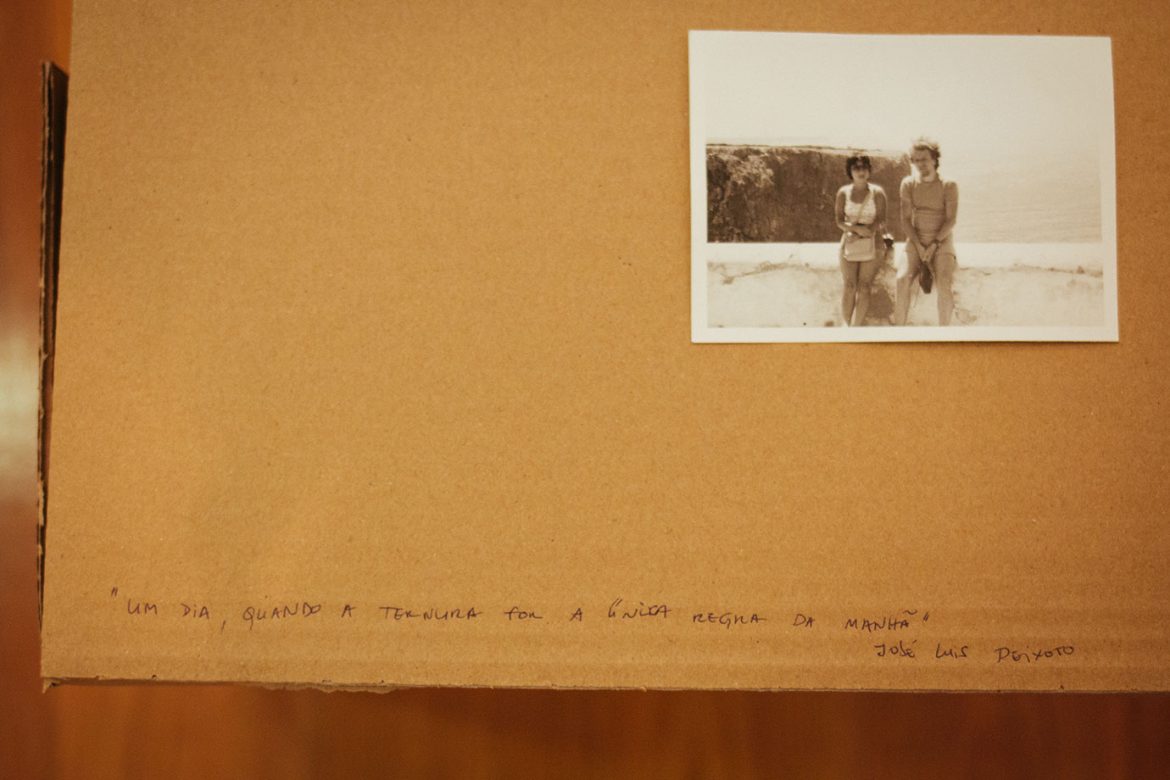 "UM DIA, QUANDO A TERNURA FOR A ÚNICA REGRA DA MANHÃ"
JOSÉ LUIS PEIXOTO